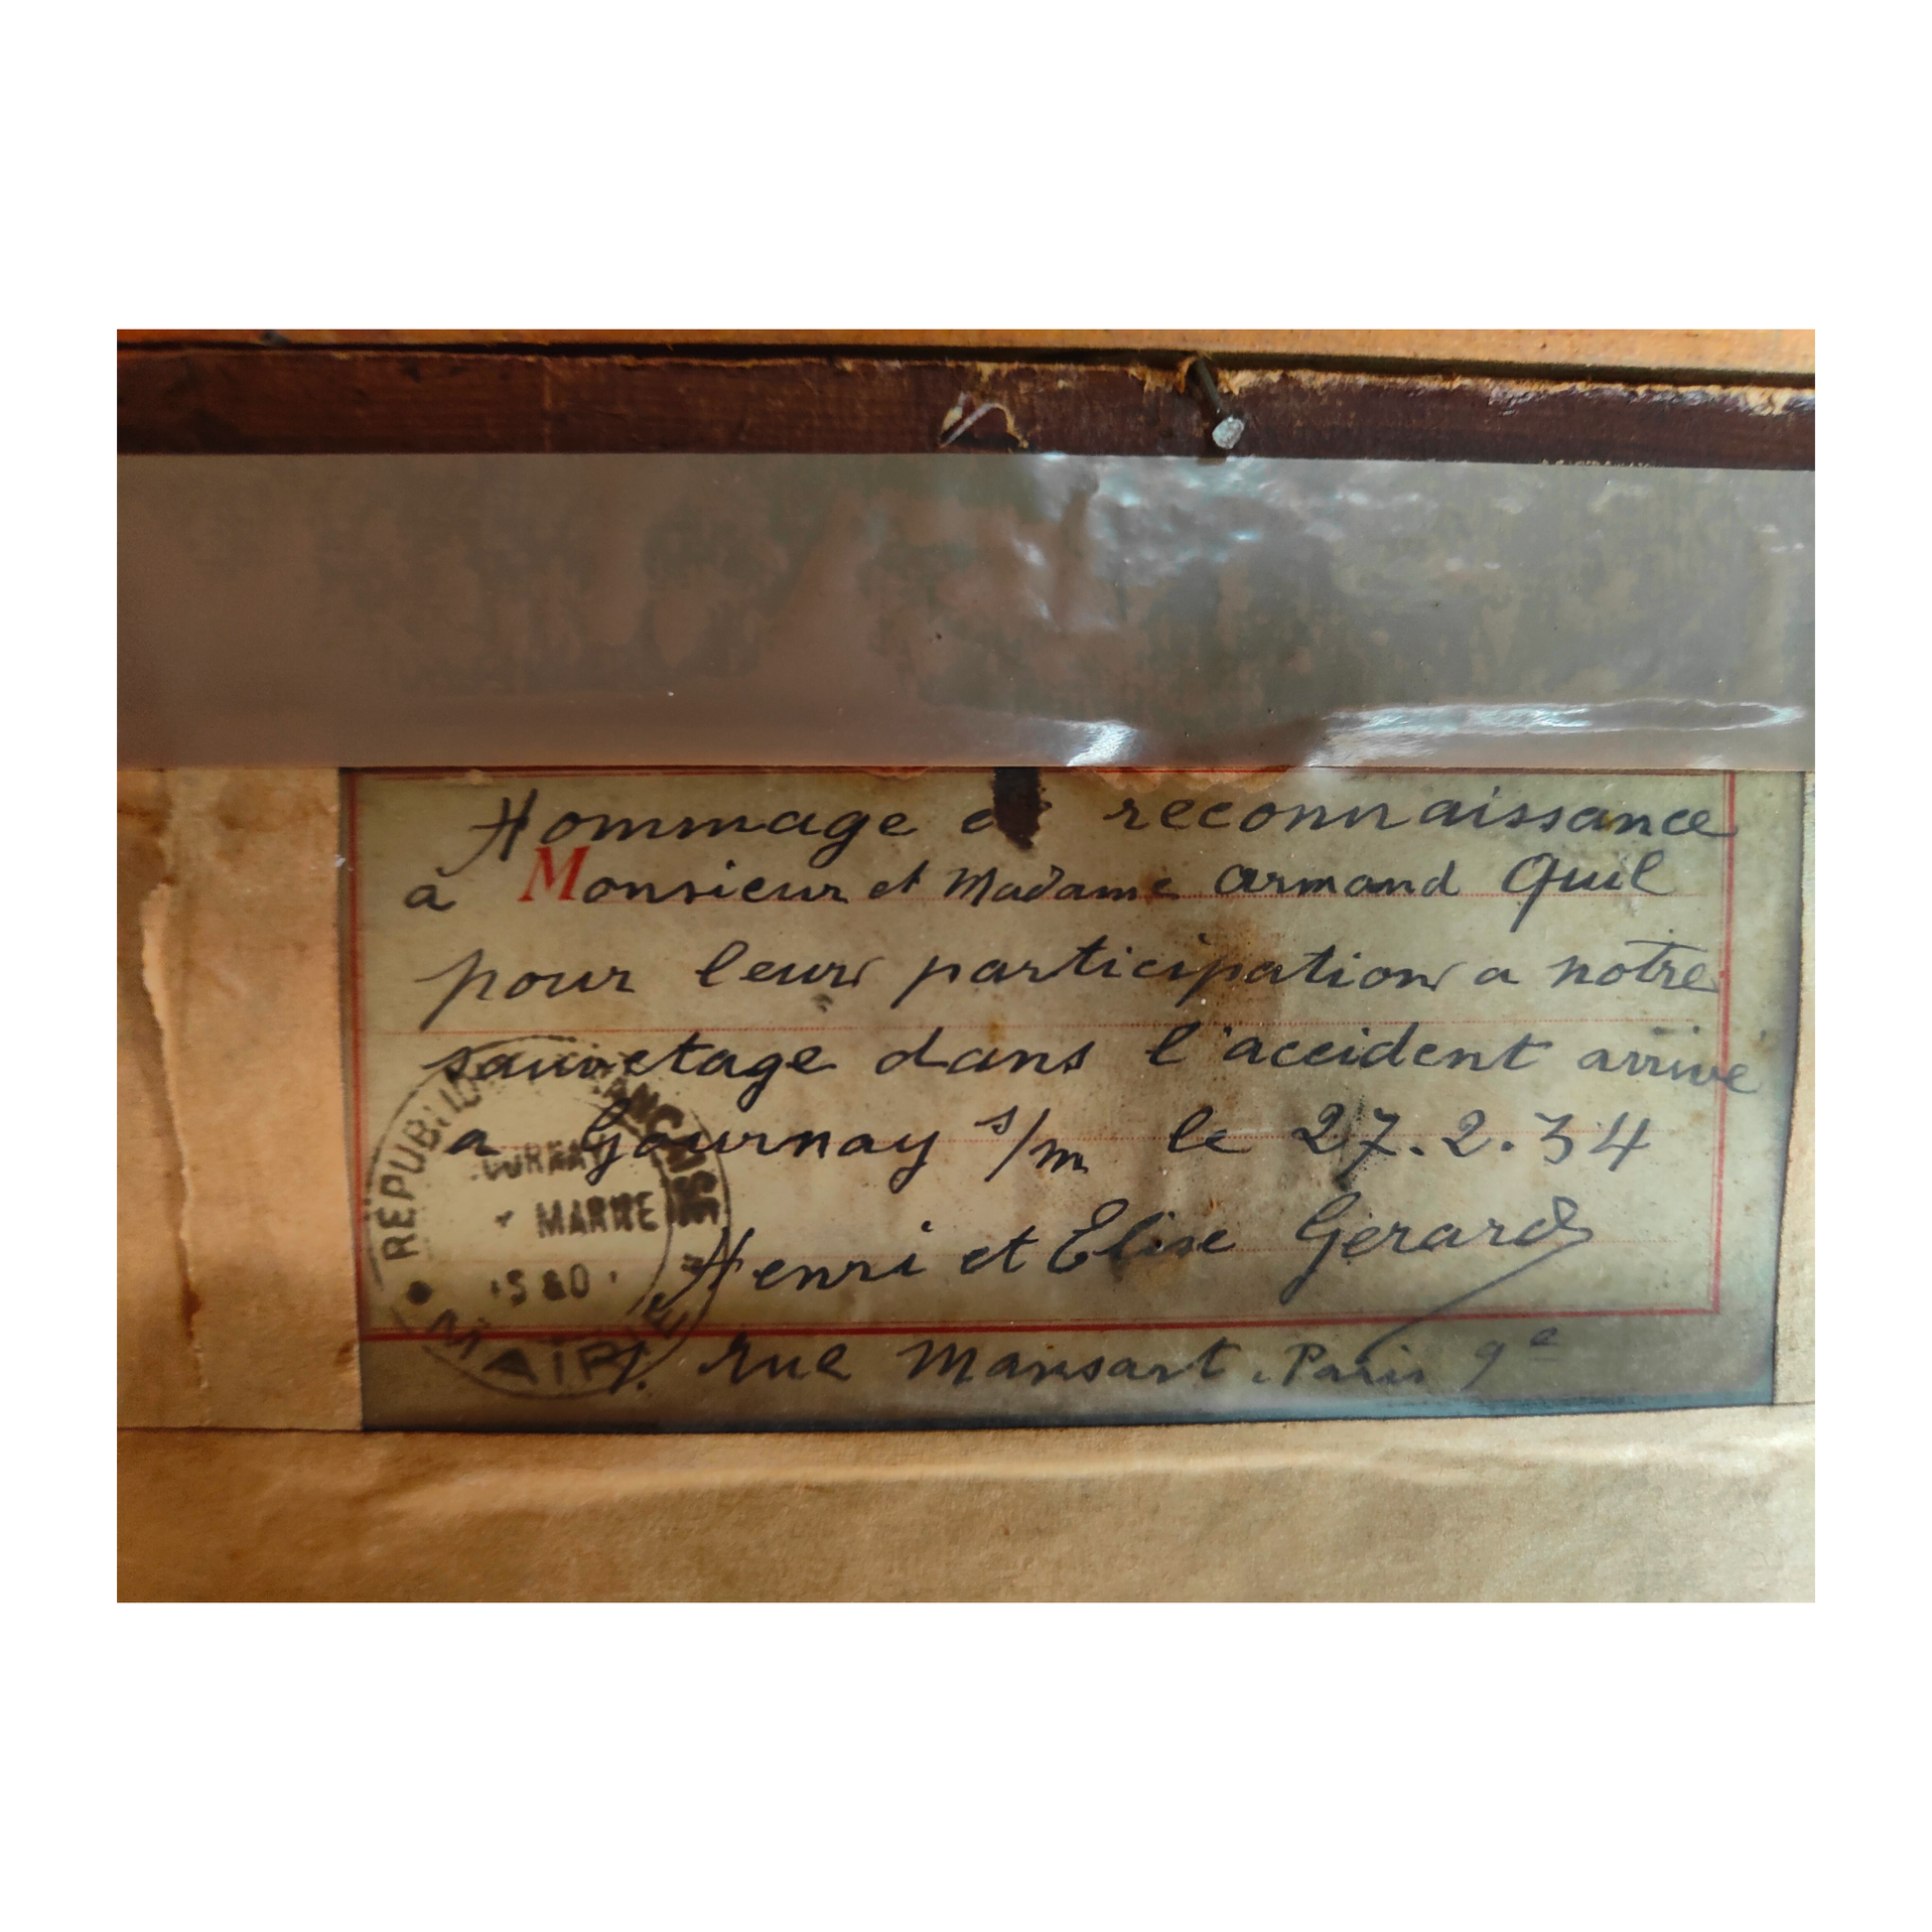 Hommage de reconnaissance
à Monsieur et Madame Armand Quil
pour leur participation a notre
sauvetage dans l'accident arrivé
a Gournay s/m le 27.2.34
Henri et Elise Gerard
rue Mansart. Paris 9e
RÉPUBLIQUE FRANÇAISE
MARNE
S & O
MAIRIE